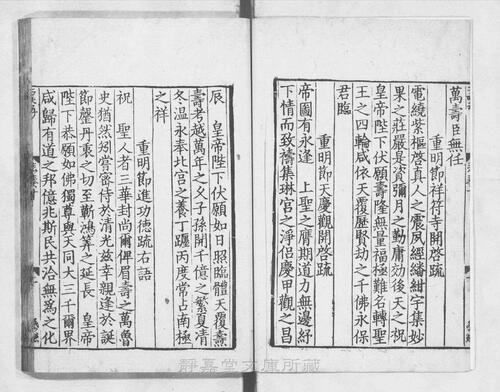 萬壽臣無任
重明節祥符寺開啓疏
電繞紫樞啓真人之震夙經繙紺宇集妙
果之莊嚴是資彌月之勤庸効後天之祝
皇帝陛下伏願壽隆無量福極難名轉聖
王之四輪咸依天覆歷賢劫之千佛永保
君臨
重明節天慶觀開啓疏
帝圖有永逢 上聖之膺期道力無邊紓
下情而致禱集琳宮之淨侶慶甲觀之昌
辰 皇帝陛下伏願如日照臨體天覆燾
壽考越萬年之久子孫開千億之繁夏凊
冬温永奉北宮之養丁躔丙度常占南極
之祥
重明節進功德疏右語
祝 聖人者三華封尚爾俾眉壽之萬魯
史猶然矧嘗密待於清光兹幸親逢於誕
節罄丹衷之切至蘄鴻筭之延長 皇帝
陛下恭願如佛獨尊與天同大三千爾界
咸歸有道之邦億兆斯民共洽無爲之化
靜嘉堂文庫所藏